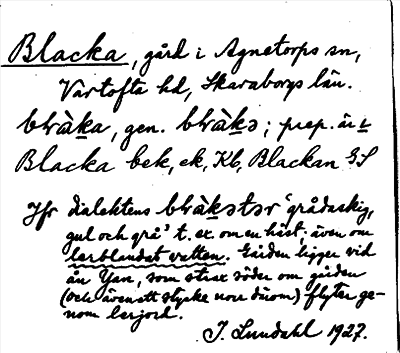 Blacka, gård i Agnetorps sn,
Vartofta hd, Skaraborgs län.
blràka, gen. blràkə; prep. är i
Blacka bek, ek, Kb, Blackan GS
Jfr dialektens blràkətər 'grådaskig,
gul och grå' t. ex. om en häst; även om
lerblandat vatten. Gården ligger vid
ån Yan, som strax söder om gården
(och även ett stycke norr därom) flyter ge-
nom lerjord.
J. Lundahl 1927.